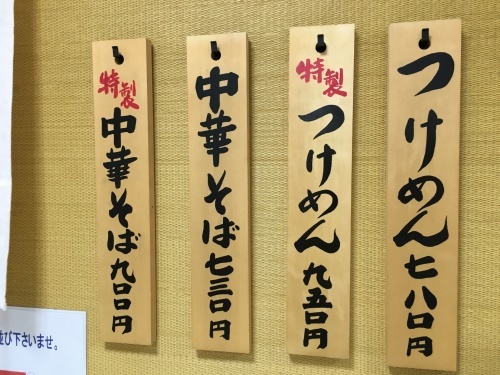 つけめん七八〇円
特製
つけめん九五〇円
中華そば七三〇円
特製
中華そば九〇〇円
び下さいませ。